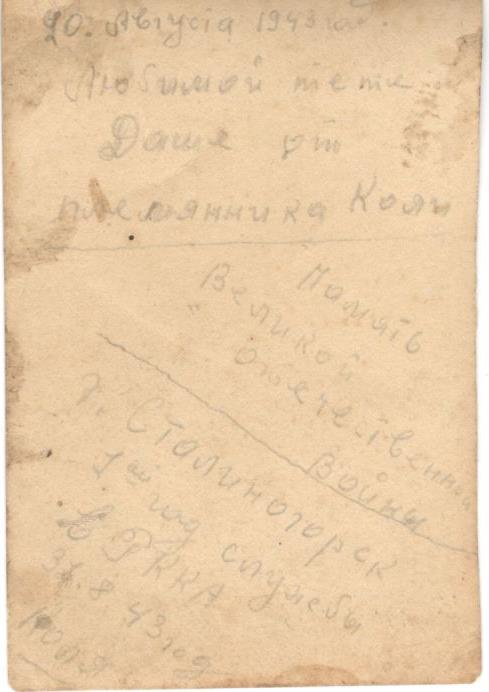 20. Августа 1943 год.
Любимой тете
Даше от
племянника Коли
Память
"Великой
отечественной
Войны
г. Сталиногорск
1ый год службы
в РККА
31.8 43 год
Коля